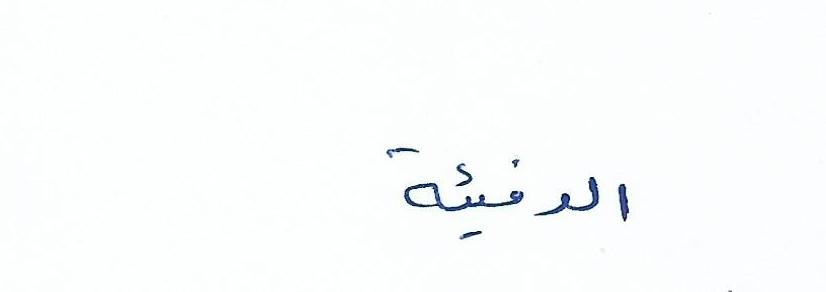 الدفيئة